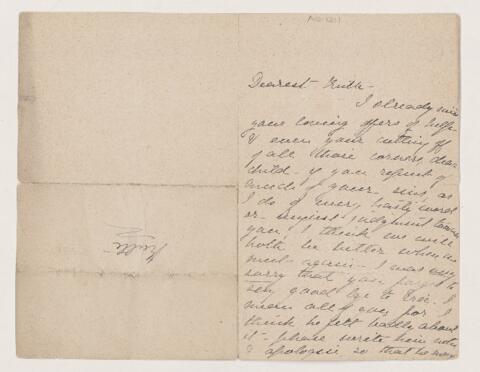 Dearest Ruth -
I already miss
your loving offers of help
& even your cutting off
of all those corners, dear
child - If you repent of
one of your sins as
I do of every hasty word
or unjust judgment toward
you, I think we will
both be better when we
meet again - I was very
sorry that you forgot to
say good bye to Eric. I
mean all of you for I
think he felt badly about
it - please write him note
& apologise, so that he may
Ruth